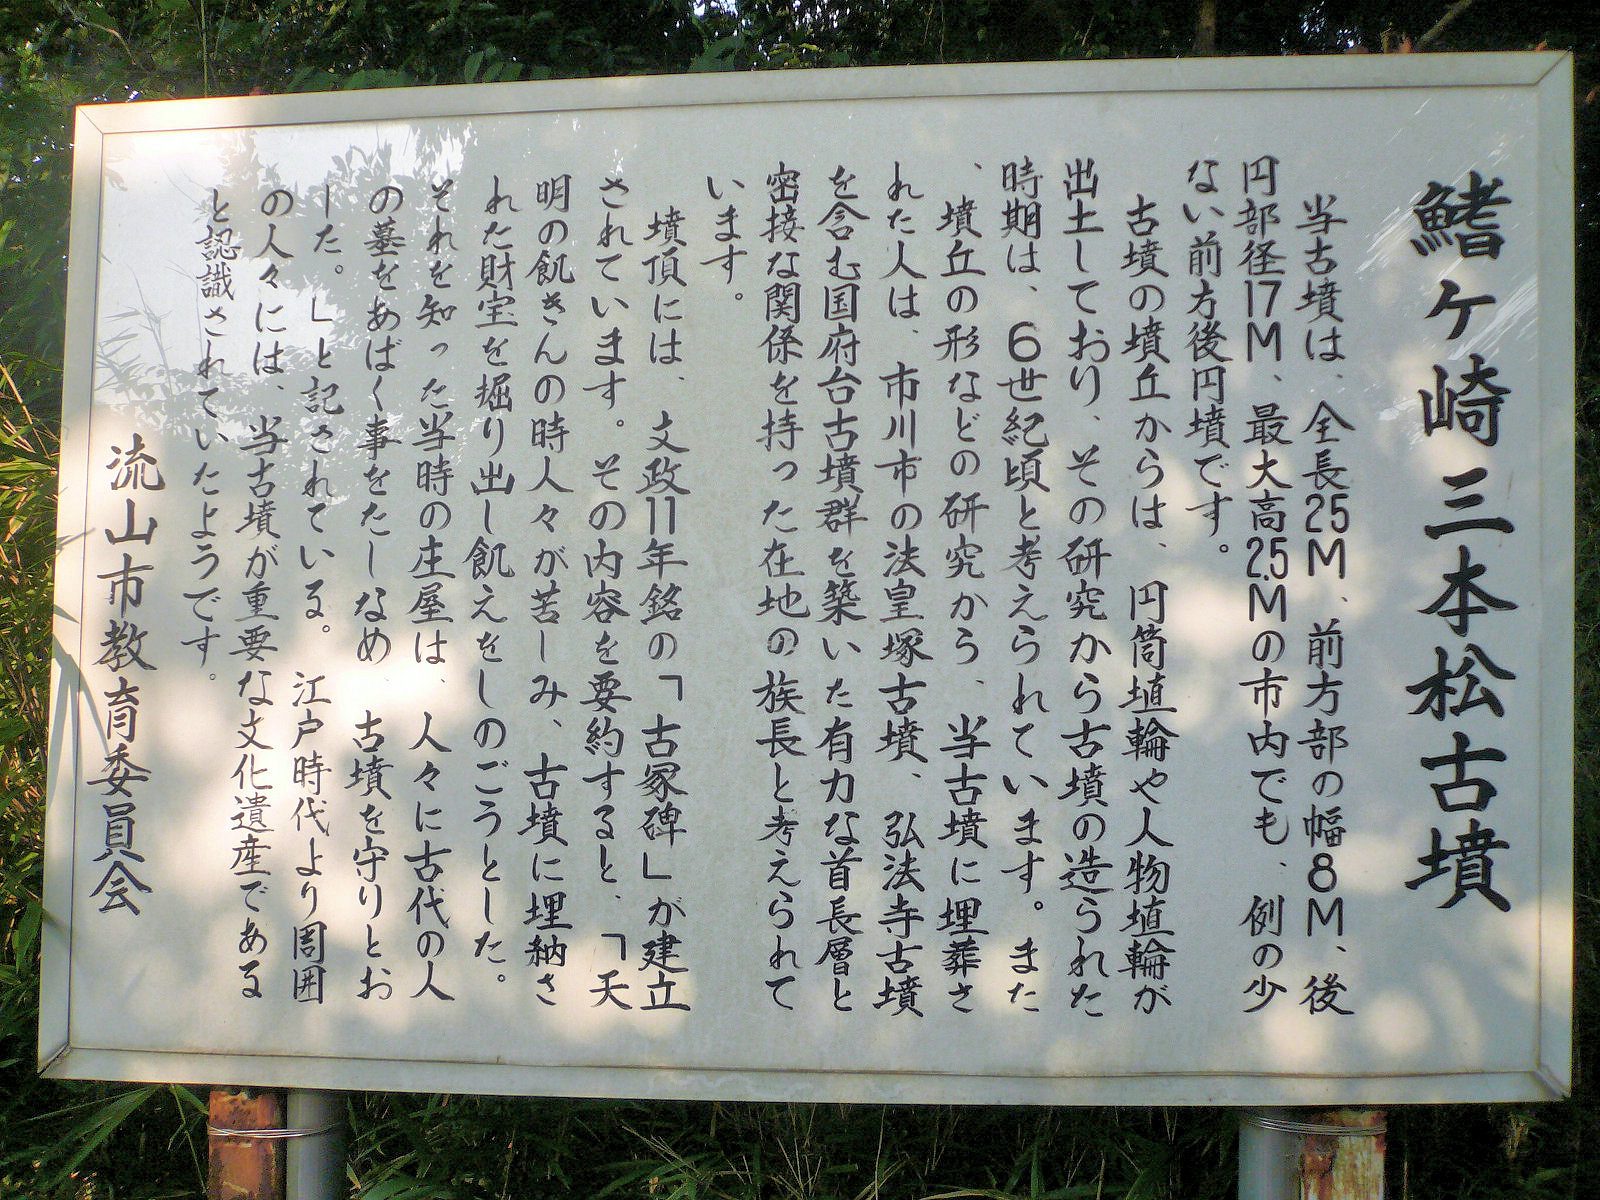 鰭ケ崎三本松古墳
当古墳は、全長25M、前方部の幅8M、後
円部径17M、最大高2.5Mの市内でも、例の少
ない前方後円墳です。
古墳の墳丘からは、円筒埴輪や人物埴輪が
出土しており、その研究から古墳の造られた
時期は、6世紀頃と考えられています。また
、墳丘の形などの研究から、当古墳に埋葬さ
れた人は、市川市の法皇塚古墳、弘法寺古墳
を含む国府台古墳群を築いた有力な首長層と
密接な関係を持った在地の族長と考えられて
います。
墳頂には、文政11年銘の「古冢碑」が建立
されています。その内容を要約すると、「天
明の飢きんの時人々が苦しみ、古墳に埋納さ
れた財宝を掘り出し飢えをしのごうとした。
それを知った当時の庄屋は、人々に古代の人
の墓をあばく事をたしなめ、古墳を守りとお
した。」と記されている。江戸時代より周囲
の人々には、当古墳が重要な文化遺産である
と認識されていたようです。
流山市教育委員会